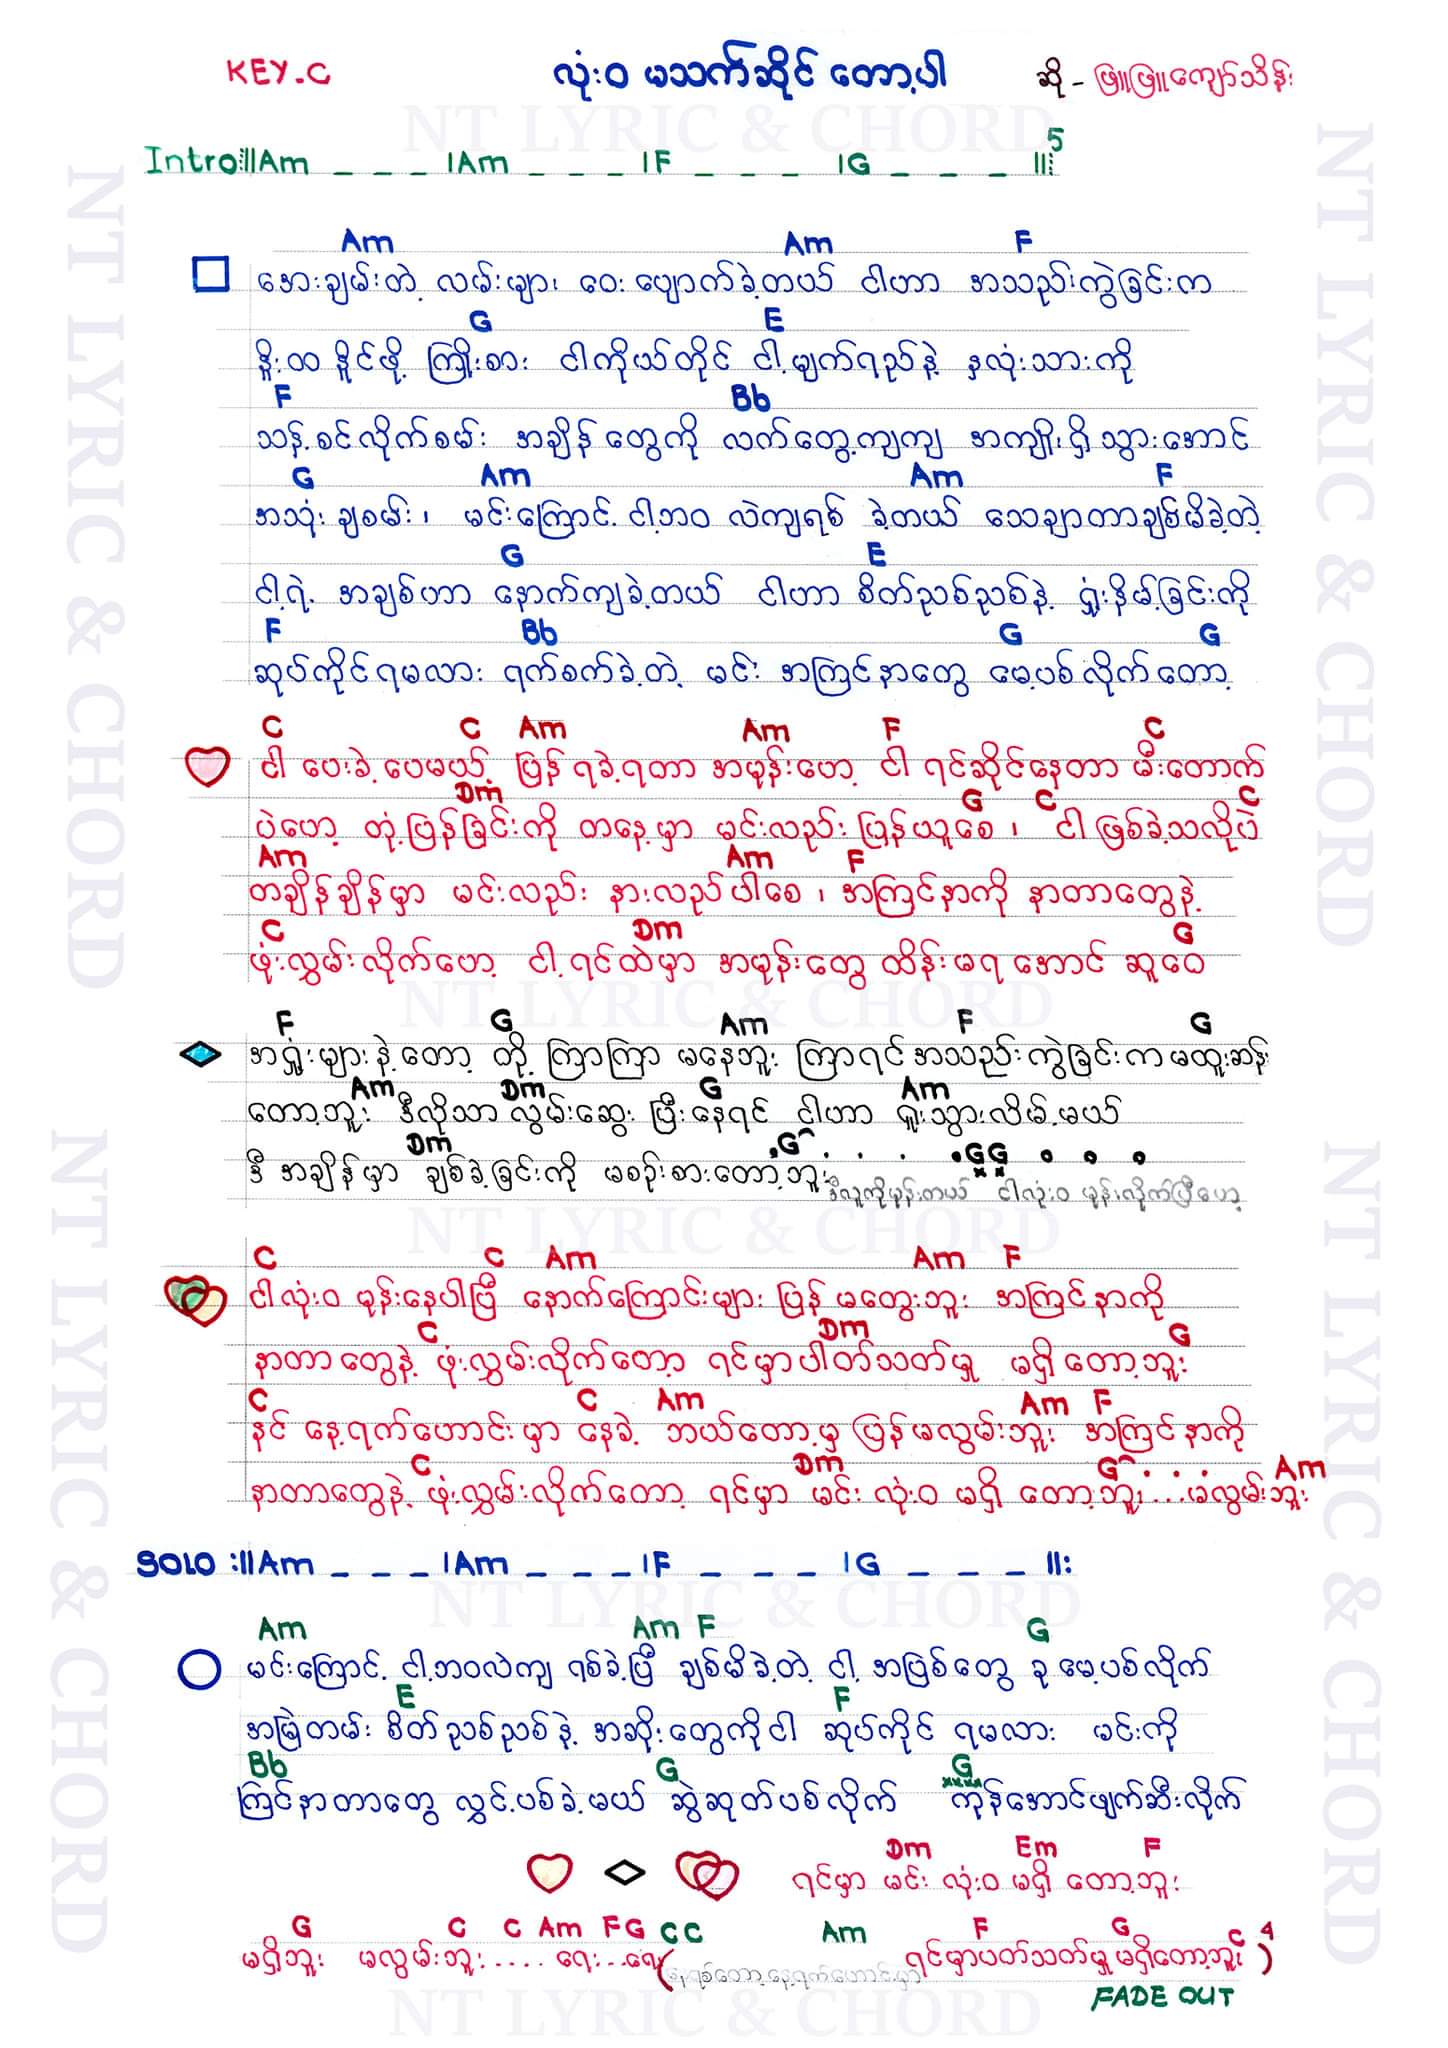 KEY-C
လုံးဝ မသက်ဆိုင် တော့ပါ
ဆို - ဖြူဖြူကျော်သိန်း
NT LYRIC & CHORD
Intro:||Am _ _ _ |Am _ _ _ |F _ _ _ |G _ _ _ ||: 5
Am Am F
အေးချမ်းတဲ့ လမ်းများ ဝေးပျောက်ခဲ့တယ် ငါဟာ အသည်းကွဲခြင်းက
G E
နိုးထ နိုင်ဖို့ ကြိုးစား ငါကိုယ်တိုင် ငါ့မျက်ရည်နဲ့ နှလုံးသားကို
F Bb
သန့်စင်လိုက်စမ်း အချိန်တွေကို လက်တွေ့ကျကျ အကျိုးရှိသွားအောင်
G Am Am F
အသုံးချစမ်း၊ မင်းကြောင့် ငါ့ဘဝ လဲကျရစ် ခဲ့တယ် သေချာတာချစ်မိခဲ့တဲ့
G E
ငါ့ရဲ့ အချစ်ဟာ နောက်ကျခဲ့တယ် ငါဟာ စိတ်ညစ်ညစ်နဲ့ ရှုံးနိမ့်ခြင်းကို
F Bb G G
ဆုပ်ကိုင်ရမလား ရက်စက်ခဲ့တဲ့ မင်း အကြင်နာတွေ မေ့ပစ်လိုက်တော့
C C Am Am F C
ငါ ပေးခဲ့ပေမယ့် ပြန်ရခဲ့ရတာ အမုန်းဟေ့ ငါ ရင်ဆိုင်နေတာ မီးတောက်
Dm G C C
ပဲဟေ့ တုံ့ပြန်ခြင်းကို တနေ့မှာ မင်းလည်း ပြန်ယူစေ၊ ငါ ဖြစ်ခဲ့သလိုပဲ
Am Am F
တချိန်ချိန်မှာ မင်းလည်း နားလည်ပါစေ၊ အကြင်နာကို နာတာတွေနဲ့
C Dm G
ဖုံးလွှမ်းလိုက်ဟေ့ ငါ့ရင်ထဲမှာ အမုန်းတွေ ထိန်းမရအောင် ဆူဝေ
F G Am F G
အရှုံးများနဲ့တော့ တို့ ကြာကြာ မနေဘူး ကြာရင် အသည်းကွဲခြင်းက မထူးဆန်း
Am Dm G Am
တော့ဘူး ဒီလိုသာ လွမ်းဆွေးပြီးနေရင် ငါဟာ ရူးသွားလိမ့်မယ်
Dm G GG
ဒီ အချိန်မှာ ချစ်ခဲ့ခြင်းကို မစဉ်းစားတော့ဘူး
ဒီလူကိုမုန်းတယ် ငါလုံးဝ မုန်းလိုက်ပြီဟေ့
NT LYRIC & CHORD
C C Am Am F
ငါလုံးဝ မုန်းနေပါပြီ နောက်ကြောင်းများ ပြန်မတွေးဘူး အကြင်နာကို
C Dm G
နာတာတွေနဲ့ ဖုံးလွှမ်းလိုက်တော့ ရင်မှာပါတ်သတ်မှု မရှိတော့ဘူး
C C Am Am F
နင် နေ့ရက်ဟောင်းမှာ နေခဲ့ ဘယ်တော့မှ ပြန်မလွမ်းဘူး အကြင်နာကို
C Dm G Am
နာတာတွေနဲ့ ဖုံးလွှမ်းလိုက်တော့ ရင်မှာ မင်း လုံးဝ မရှိတော့ဘူး...မလွမ်းဘူး
SOLO :||Am _ _ _ |Am _ _ _ |F _ _ _ |G _ _ _ ||:
NT LYRIC & CHORD
Am Am F G
မင်းကြောင့် ငါ့ဘဝလဲကျ ရစ်ခဲ့ပြီ ချစ်မိခဲ့တဲ့ ငါ့ အဖြစ်တွေ ခု မေ့ပစ်လိုက်
E F
အမြဲတမ်း စိတ်ညစ်ညစ်နဲ့ အဆိုးတွေကိုငါ ဆုပ်ကိုင် ရမလား မင်းကို
Bb G G
ကြင်နာတာတွေ လွှင့်ပစ်ခဲ့မယ် ဆွဲဆုတ်ပစ်လိုက် ကုန်အောင်ဖျက်ဆီးလိုက်
Dm Em F
ရင်မှာ မင်း လုံးဝ မရှိတော့ဘူး
G C C Am F G C C Am F G C 4
မရှိဘူး မလွမ်းဘူး.... ရေး...ရေး ( နေရစ်တော့နေ့ရက်ဟောင်းမှာ ရင်မှာပတ်သတ်မှု မရှိတော့ဘူး )
FADE OUT
NT LYRIC & CHORD